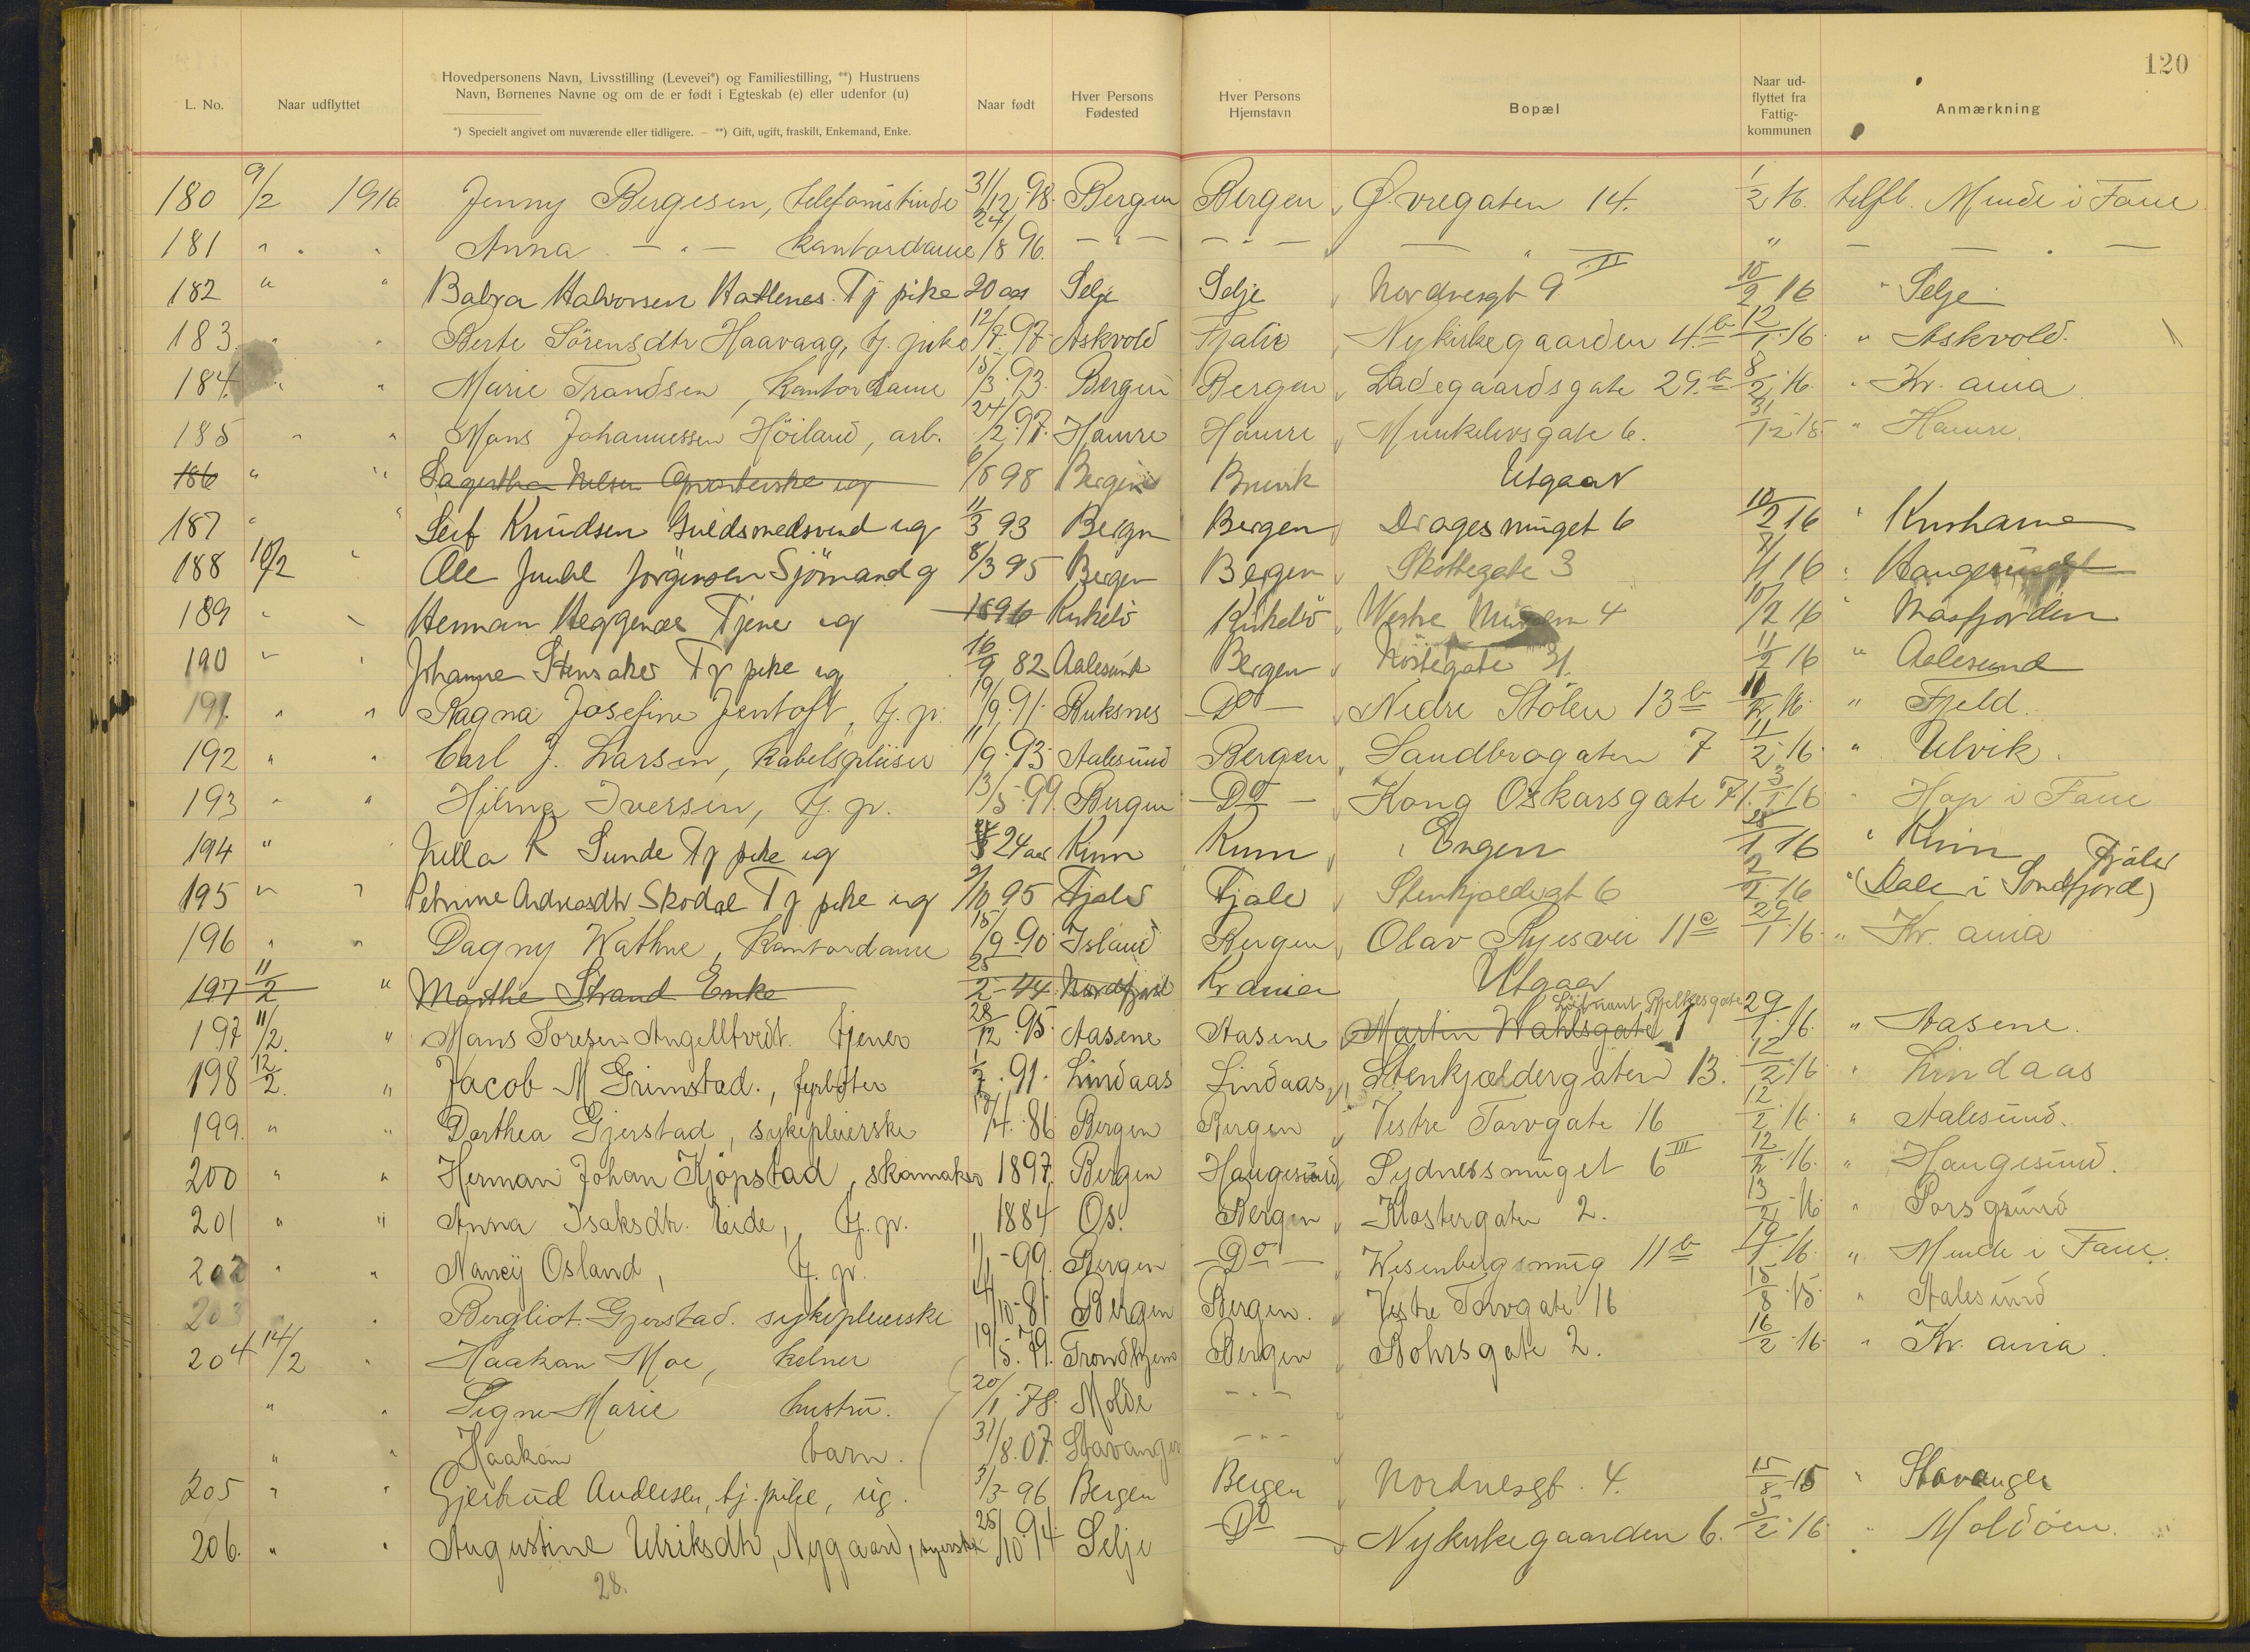 120
L. No.
Naar udflyttet
Hovedpersonens Navn, Livsstilling (Levevei*) og Familiestilling, **) Hustruens
Navn, Børnenes Navne og om de er født i Egteskab (e) eller udenfor (u)
*) Specielt angivet om nuværende eller tidligere. — **) Gift, ugift, fraskilt, Enkemand, Enke.
Naar født
Hver Persons
Fødested
Hver Persons
Hjemstavn
Bopæl
Naar ud-
flyttet fra
Fattig-
kommunen
Anmærkning
180 9/2 1916 Jenny Bergesen, telefonistinde 31/12 98. Bergen Bergen Ø. vregaten 14. 1/2 16. tilfl. Minde i Fane
181 " " " Anna — " — kontordame 24/8 96. — " — — " — — " — " — " —
182 " " Babra Halvorsen Hatlenes Tj pike 20 aar Selje Selje Nordnesgt 9 II 10/2 16 " Selje
183. " " Berte Sörensdtr Haavaag, tj. pike 12/8. 97. Askvold Fjaler Nykirkegaarden 4. b 12/1. 16. " Askvold.
184. " " Marie Trandsen, kontordame 15/3. 93. Bergen Bergen Ladegaardsgate 29. b 8/2. 16. " Kr. ania
185 " " Mons Johannessen Höiland, arb. 24/2. 97. Hamre Hamre Munkelivsgate 6. 31/12. 15. " Hamre.
186 " " Lagertha Nilsen Opvarterske ug 6/8 98 Bergen Bruvik Utgaar
187 " " Leif Knudsen Guldsmedsvend ug 11/3 93 Bergen Bergen Dragesmuget 6 10/2 16 "
188 10/2 " Ole Juuhl Jörgensen Sjömand g 8/3 95 Bergen Bergen Skottegate 3 7/1 16 " Haugesund
189 " " Herman Heggenes Tjener ug 1896 Kirkelö Kirkelö Westre 4 10/2 16 " Masfjorden
190 " " Johanne Stensaker Tj pike ug 16/9 82 Aalesund Bergen Nöstegate 31. 11/2 16 " Aalesund
191. " " Ragna Josefine Jentoft, tj. p. 19/9. 91. Buksnes — Do — Nedre Stölen 13 b 11/2 16. " Fjeld.
192 " " Carl J. Larsen, kabelspleiser 11/9. 93. Aalesund Bergen Sandbrogaten 7 11/2. 16. " Ulvik.
193 " " Hilma Iversen, tj. p. 13/5. 99. Bergen — Do — Kong Oskarsgate 71. 3/1 16 " Hop i Fane
194 " " K Sunde Tj pike ug 24 aar Kinn Kinn Engen 28/1 16 " Kinn
195 " " Petrine Andreasdtr Skodal Tj pike ug 9/10 95 Fjaler Fjaler Stenkjeldergt 6 2/2. 16 " (Dale i Söndfjord) Fjaler
196 " " Dagny Wathne, kontordame 15/9. 90. Island Bergen Olav Ryesvei 11 a 29/1. 16. " Kr. ania
197 11/2 " Marthe Strand Enke 25/2 - 44 Nordfjord Kr ania Utgaar
197 11/2. " Mons Toresen Angelltvedt. tjener 28/12 . 95. Aasene Aasene Martin Wahlsgate 1 Löitnant Bjelkesgate 29/1. 16. " Aasene.
198 12/2. " Jacob M Grimstad., fyrböter 1/7. 91. Lindaas Lindaas Stenkjældergaten 13. 12/2. 16 " Lindaas
199. " " Dorthea Gjerstad, sykepleierske 18/4. 86 Bergen Bergen Vestre Torvgate 16 12/2. 16. " Aalesund.
200 " " Herman Johan Kjöpstad, skomaker 1897. Bergen Haugesund Sydnessmuget 6 III 12/2. 16. " Haugesund.
201 " " Anna Isaksdtr. Eide, tj. p. 1884 Os. Bergen Klostergaten 2. 13/2 16. " Porsgrund
202 " " Nancy Osland, tj. p. 1/1 - 99. Bergen — Do — Wesenbergsmug 11 b 19/1. 16. " Minde i Fane.
203 " " Bergliot Gjerstad. sykepleierske 4/10 - 81 Bergen Bergen. Vestre Torvgate 16 15/8 15. " Aalesund
204 14/2 " Haakon Moe, kelner 19/5. 79. Trondhjem Bergen Bohrsgate 2. 16/2 16. " Kr. ania.
" " Signe Marie hustru. 20/1. 78. Molde — " —
" " Haakon barn. 31/8. 07. Stavanger — " —
205 " " Gjertrud Andersen, tj. pike, ug. 3/3 - 96 Bergen Bergen Nordnesgt. 4. 15/8 15 " Stavanger
206. " " Augustine Ulriksdtr, Nygaard, syerske 25/10. 94 Selje — Do — Nykirkegaarden 6. 5/2. 16. " Moldöen.
28.